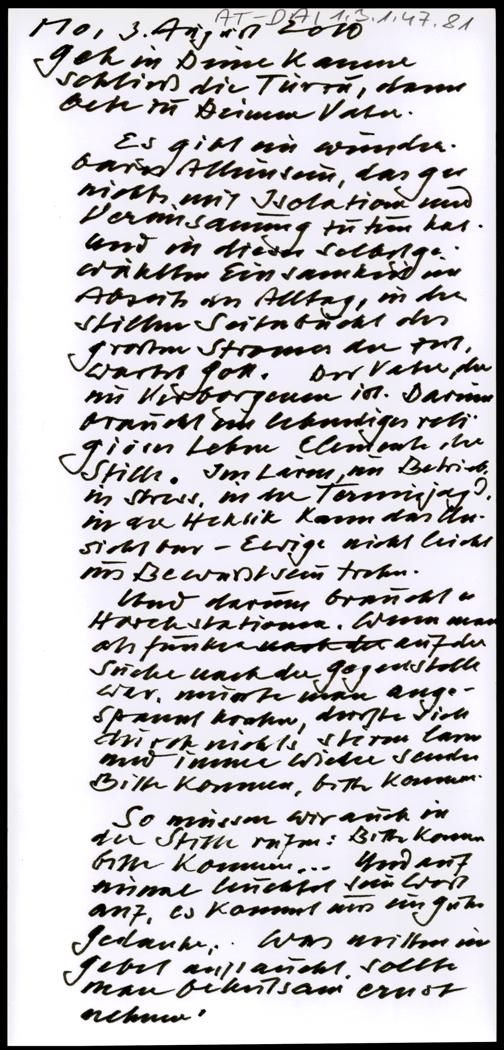 AT-DAI 1.3.1.47.81
Mo, 3. August 2010
Geh in Deine Kammer
schließ die Türzu, dann
bete zu Deinem Vater.
Es gibt ein wunder-
bares Alleinsein, das gar
nichts mit Isolation und
Vereinsamung zu tun hat.
Und in dieser selbstge-
wählten Einsamkeit im
Abseits des Alltag, in der
stillen Seitenbucht des
großen Stromes der Zeit,
wartet Gott. Der Vater, der
im Verborgenen ist. Darum
braucht ein lebendiges reli-
giöses Leben Elemente der
Stille. Im Lärm, im Betrieb,
im Stress, in der Terminjagd,
in der Hektik kann das Un-
sichtbar-Ewige nicht leicht
ins Bewußtsein treten.
Und darum braucht es
Horchstationen. Wenn man
als Funker nach der auf der
Suche nach der Gegenstelle
war, mußte man ange-
spannt horchen, durfte sich
durch nichts stören lassen
und immer wieder senden
Bitte kommen, bitte kommen.
So müssen wir auch in
der Stille rufen: Bitte kommen
bitte kommen... Und auf
einmal leuchtet sein Wort
auf, es kommt uns ein guter
Gedanke,.. Was mitten im
Gebet auftaucht, sollte
man behutsam ernst
nehmen.